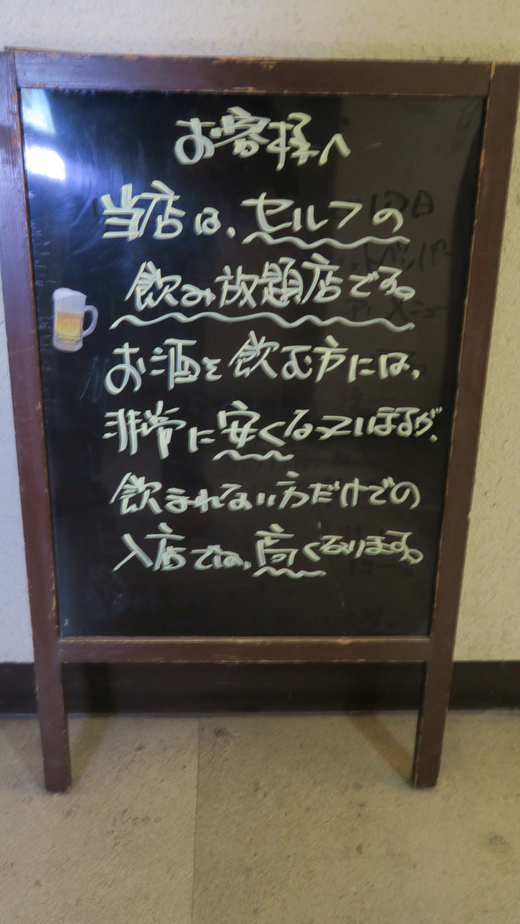 お客様へ
当店は、セルフの
飲み放題店です。
お酒を飲む方には、
非常に安くなりますが、
飲まれない方だけでの
入店では、高くなります。